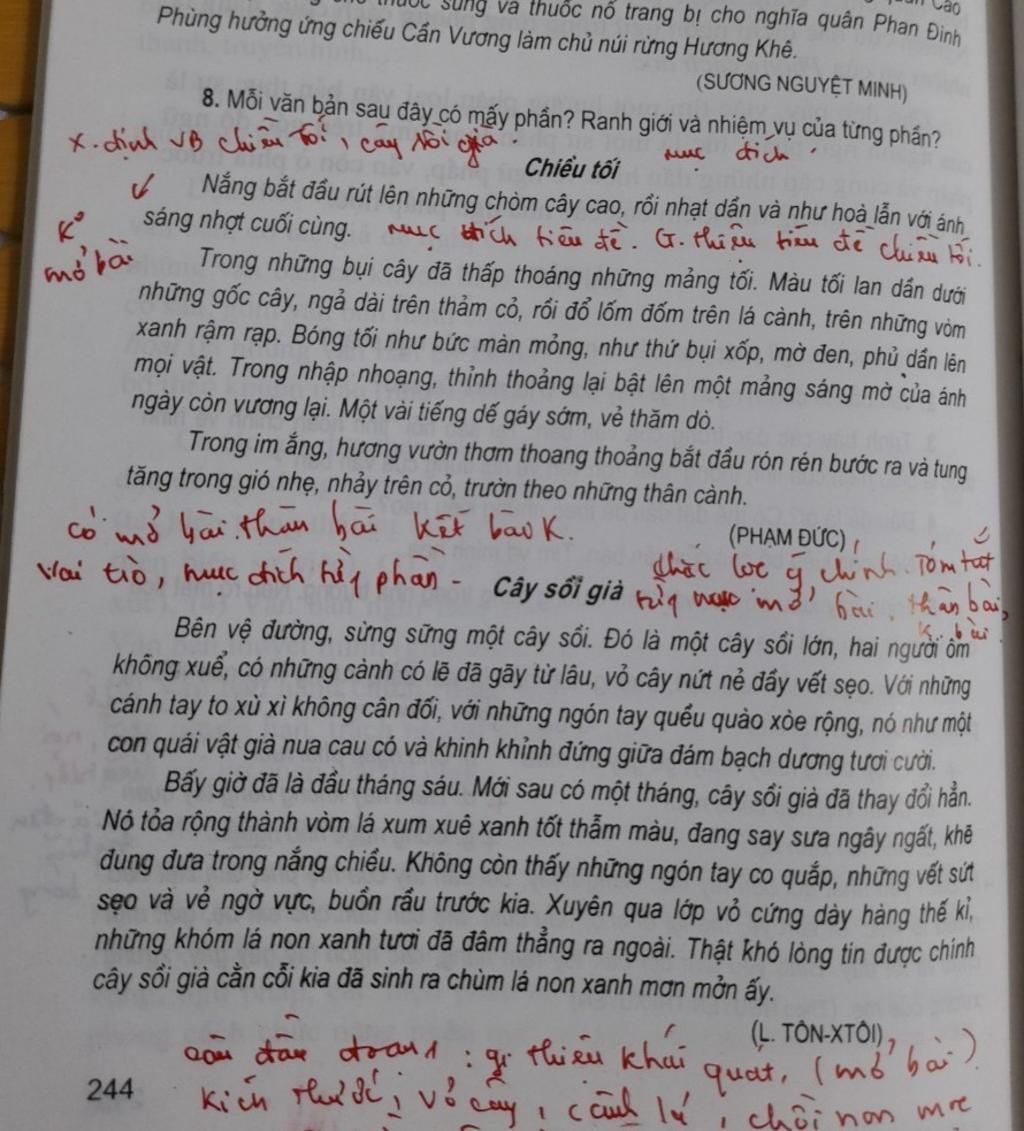 thuốc súng và thuốc nổ trang bị cho nghĩa quân Phan Đình
Phùng hưởng ứng chiếu Cần Vương làm chủ núi rừng Hương Khê.
(SƯƠNG NGUYỆT MINH)
8. Mỗi văn bản sau đây có mấy phần? Ranh giới và nhiệm vụ của từng phần?
x. định VB chiều tối, cây sồi già.
mục đích.
Chiều tối
Nắng bắt đầu rút lên những chòm cây cao, rồi nhạt dần và như hoà lẫn với ánh
sáng nhợt cuối cùng. mục đích tiêu đề. G. thiệu tiêu đề chiều tối.
K°
mở bài
Trong những bụi cây đã thấp thoáng những mảng tối. Màu tối lan dần dưới
những gốc cây, ngả dài trên thảm cỏ, rồi đổ lốm đốm trên lá cành, trên những vòm
xanh rậm rạp. Bóng tối như bức màn mỏng, như thứ bụi xốp, mờ đen, phủ dần lên
mọi vật. Trong nhập nhoạng, thỉnh thoảng lại bật lên một mảng sáng mờ của ánh
ngày còn vương lại. Một vài tiếng dế gáy sớm, vẻ thăm dò.
Trong im ắng, hương vườn thơm thoang thoảng bắt đầu rón rén bước ra và tung
tăng trong gió nhẹ, nhảy trên cỏ, trườn theo những thân cành.
có mở bài, thân bài kết bài K.
(PHẠM ĐỨC)
Vai trò, mục đích từng phần -
Cây sồi già
lọc ý chính. Tóm tắt
mở bài, thân bài,
k. bài
Bên vệ đường, sừng sững một cây sồi. Đó là một cây sồi lớn, hai người ôm
không xuể, có những cành có lẽ đã gãy từ lâu, vỏ cây nứt nẻ đầy vết sẹo. Với những
cánh tay to xù xì không cân đối, với những ngón tay quều quào xòe rộng, nó như một
con quái vật già nua cau có và khinh khỉnh đứng giữa đám bạch dương tươi cười.
Bấy giờ đã là đầu tháng sáu. Mới sau có một tháng, cây sồi già đã thay đổi hẳn.
Nó tỏa rộng thành vòm lá xum xuê xanh tốt thẫm màu, đang say sưa ngây ngất, khẽ
đung đưa trong nắng chiều. Không còn thấy những ngón tay co quắp, những vết sứt
sẹo và vẻ ngờ vực, buồn rầu trước kia. Xuyên qua lớp vỏ cứng dày hàng thế kỉ,
những khóm lá non xanh tươi đã đâm thẳng ra ngoài. Thật khó lòng tin được chính
cây sồi già cằn cỗi kia đã sinh ra chùm lá non xanh mơn mởn ấy.
(L. TÔN-XTÔI)
câu đầu đoạn 1: gi thiệu khái quát, (mở bài)
244
kích thước, vỏ cây, cành lá, chồi non mọc